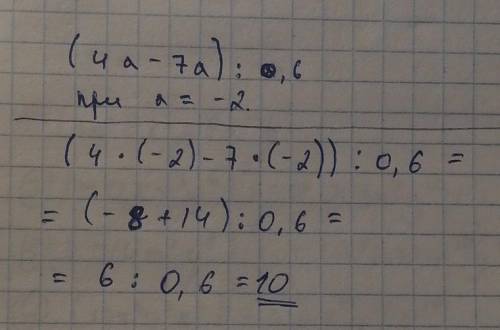 (4a - 7a) : 0,6
при a = -2.
(4 · (-2) - 7 · (-2)) : 0,6 =
= (-8 + 14) : 0,6 =
= 6 : 0,6 = 10